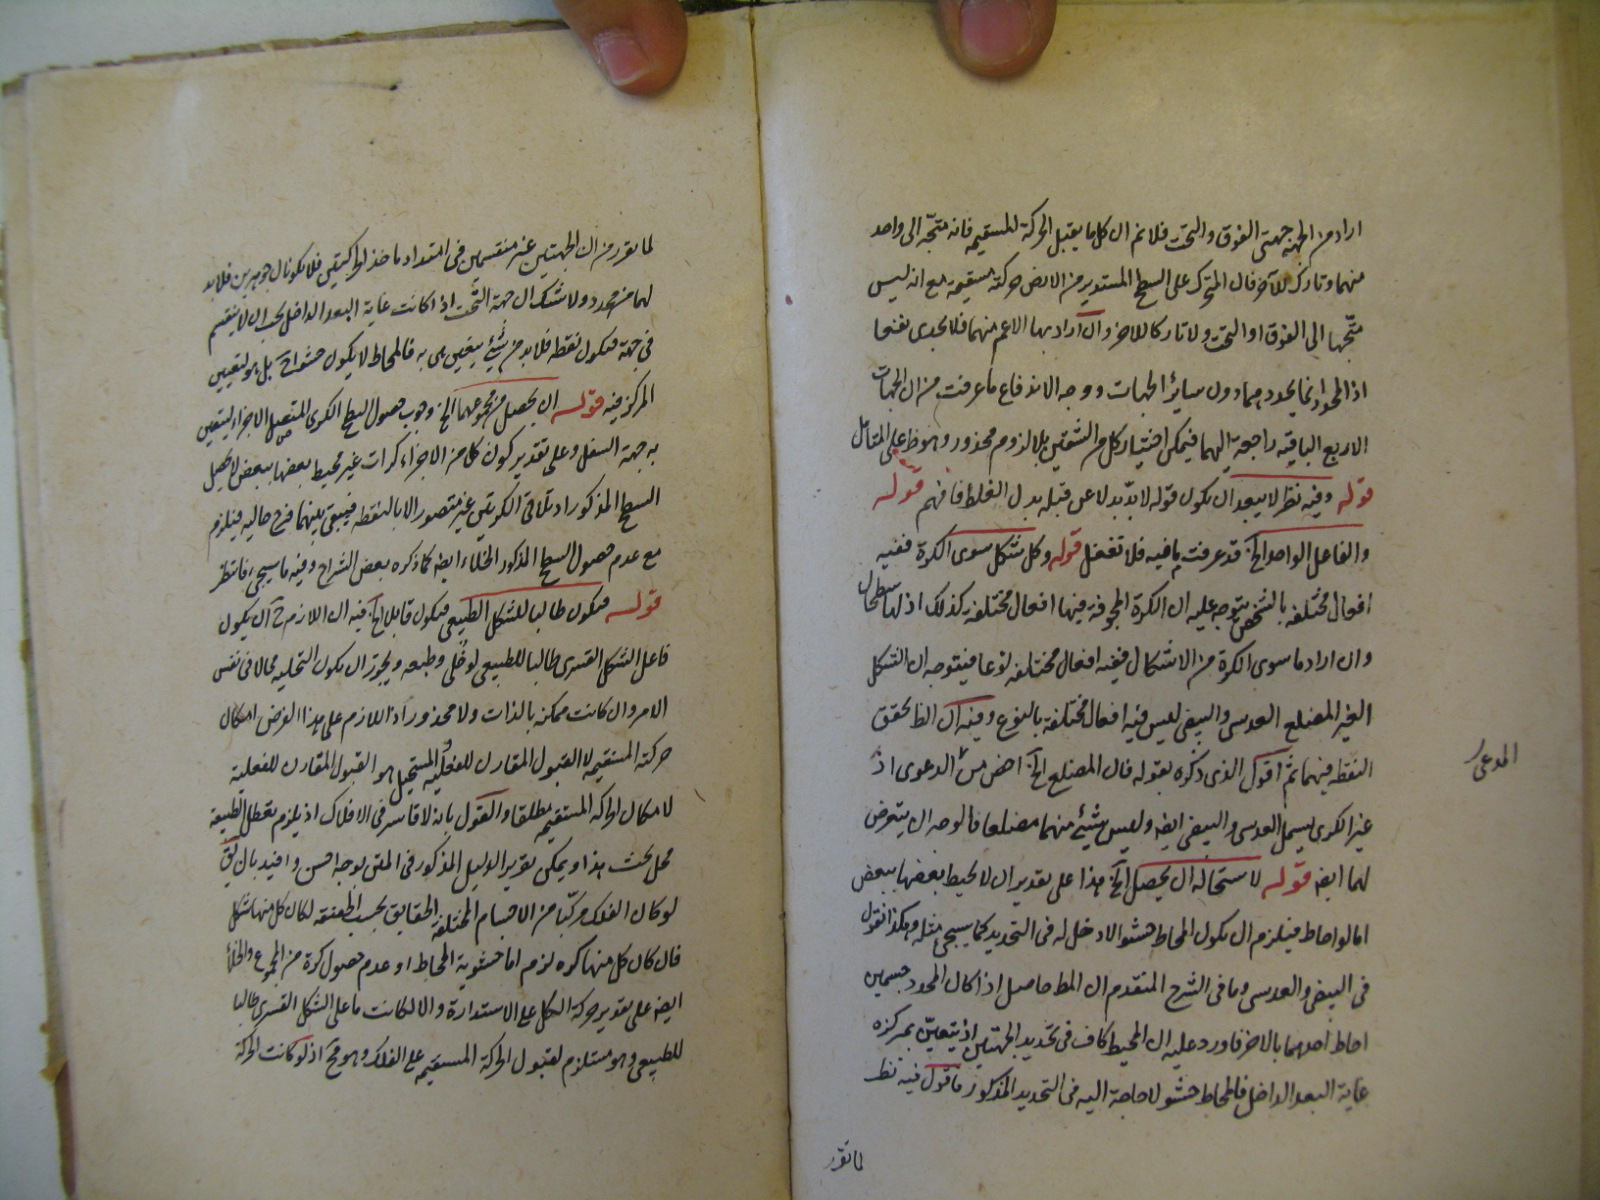 اراد من الجهة جهتى الفوق والتحت فلا نم ان كل ما يقبل الحركة المستقيمة فانه متجّه الى واحد
منهما وتارك للآخر فان المتحرك على السطح المستدير من الارض حركته مستقيمة مع انه ليس
متجّها الى الفوق او التحت ولا تاركا للاخر وان اراد بها الاعم منهما فلا يجدى نفعا
اذ المحدد انما يحدد هما دون سائر الجهات ووجه الاندفاع ما عرفت من ان الجهات
الاربع الباقية راجعة اليهما فيمكن اختيار كل من الشقين بلا لزوم محذور وهو ظ على المتأمل
قوله وفيه نظر لا يبعد ان يكون قوله لا بدّ بدلا عن قبله بدل الغلط فافهم قوله
والفاعل الواحد الخ قد عرفت ما فيه فلا تغفل قوله وكل شكل سوى الكرة ففيه
افعال مختلفة بالشخص يتوجه عليه ان الكرة المجوفة فيها افعال مختلفة كذلك اذ لها سطحان
وان اراد ما سوى الكرة من الاشكال ففيه افعال مختلفة نوعا فيتوجه ان الشكل
الغير المضلع العدسى والبيضى ليس فيه افعال مختلفة بالنوع وفيه ان الظ تحقق
النقطة فيهما ثم اقول الذى ذكره بقوله فان المضلع الخ اخص من الدعوى اذ
المدعى
غير الكرى يشمل العدسى والبيضى ايضا وليس شيئ منهما مضلعا فالوجه ان يتعرض
لهما ايضا قوله لاستحالة ان يحصل الخ هذا على تقدير ان لا يحيط بعضها ببعض
اما لو احاط فيلزم ان يكون المحاط حشوا لا دخل له فى التحديد كما سيجئ مثله وهكذا نقول
فى البيضى والعدسى وما فى الشرح المتقدم ان المط حاصل اذا كان المحدد جسمين
احاط احدهما بالاخر فاورد عليه ان المحيط كاف فى تحديد الجهتين اذ يتعين بمركزه
غاية البعد الداخل فالمحاط حشو لا حاجة اليه فى التحديد المذكور فاقول فيه نظر
لما تقرر
لما تقرر من ان الجهتين غير منقسمين فى امتداد ماخذ الحركتين فلا يكونان جوهرين فلا بد
لهما من محدد ولا شك ان جهة التحت اذا كانت غاية البعد الداخل يجب ان لا ينقسم
فى جهة فيكون نقطة فلا بد من شيئ يتعين هى به فالمحاط لا يكون حشوا ح بل هو لتعيين
المركز فيه قوله ان يحصل من مجموعها الخ وجوب حصول السطح الكرى المتصل الاجزاء ليتعين
به جهة السفل وعلى تقدير كون كل من الاجزاء كرات غير محيط بعضها ببعض لا يحصل
السطح المذكور اذ تلاقى الكرتين غير متصور الا بالنقطة فيبقى بينهما فرج خالية فيلزم
مع عدم حصول السطح المذكور الخلاء ايضا كما ذكره بعض الشراح وفيه ما سيجئ فانتظر
قوله فيكون طالبا للشكل الطبيعى فيكون قابلا الخ فيه ان اللازم ح ان يكون
فاعل الشكل القسرى طالبا للطبيعى لو خلى وطبعه ويجوز ان يكون التخلية محالا فى نفس
الامر وان كانت ممكنة بالذات ولا محذور اذ اللازم على هذا الفرض امكان
حركته المستقيمة لا القبول المقارن للفعلية والمستحيل هو القبول المقارن للفعلية
لا مكان الحركة المستقيمة مطلقا والقول بانه لا قاسر فى الافلاك اذ يلزم تعطل الطبيعة
محل بحث هذا ويمكن تقرير الدليل المذكور فى المتن بوجه احسن وافيد بان يق
لو كان الفلك مركّبا من الاجسام المختلفة الحقايق بحسب الطبيعة لكان كل منها شكل
فان كان كل منها كره لزم اما حشوية المحاط او عدم حصول كرة من المجموع والخلأ
ايضا على تقدير حركة الكل على الاستدارة والا لكانت ما على الشكل القسرى طالبا
للطبيعى وهو مستلزم لقبول الحركة المستقيمة على الفلك وهو مح اذ لو كانت الحركة